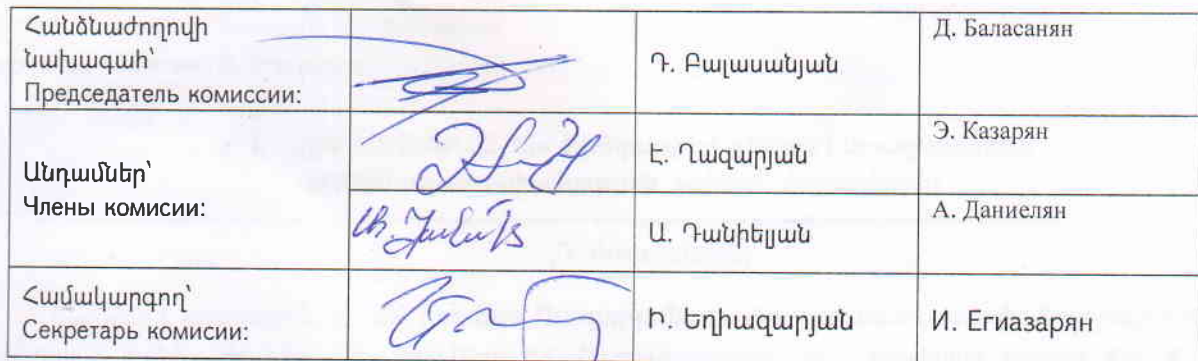 Հանձնաժողովի
նախագահ՝
Председатель комиссии:
Դ. Բալասանյան
Д. Баласанян
Անդամներ՝
Члены комисии:
Է. Ղազարյան
Э. Казарян
Ա. Դանիելյան
А. Даниелян
Համակարգող՝
Секретарь комисии:
Ի. Եղիազարյան
И. Егиазарян